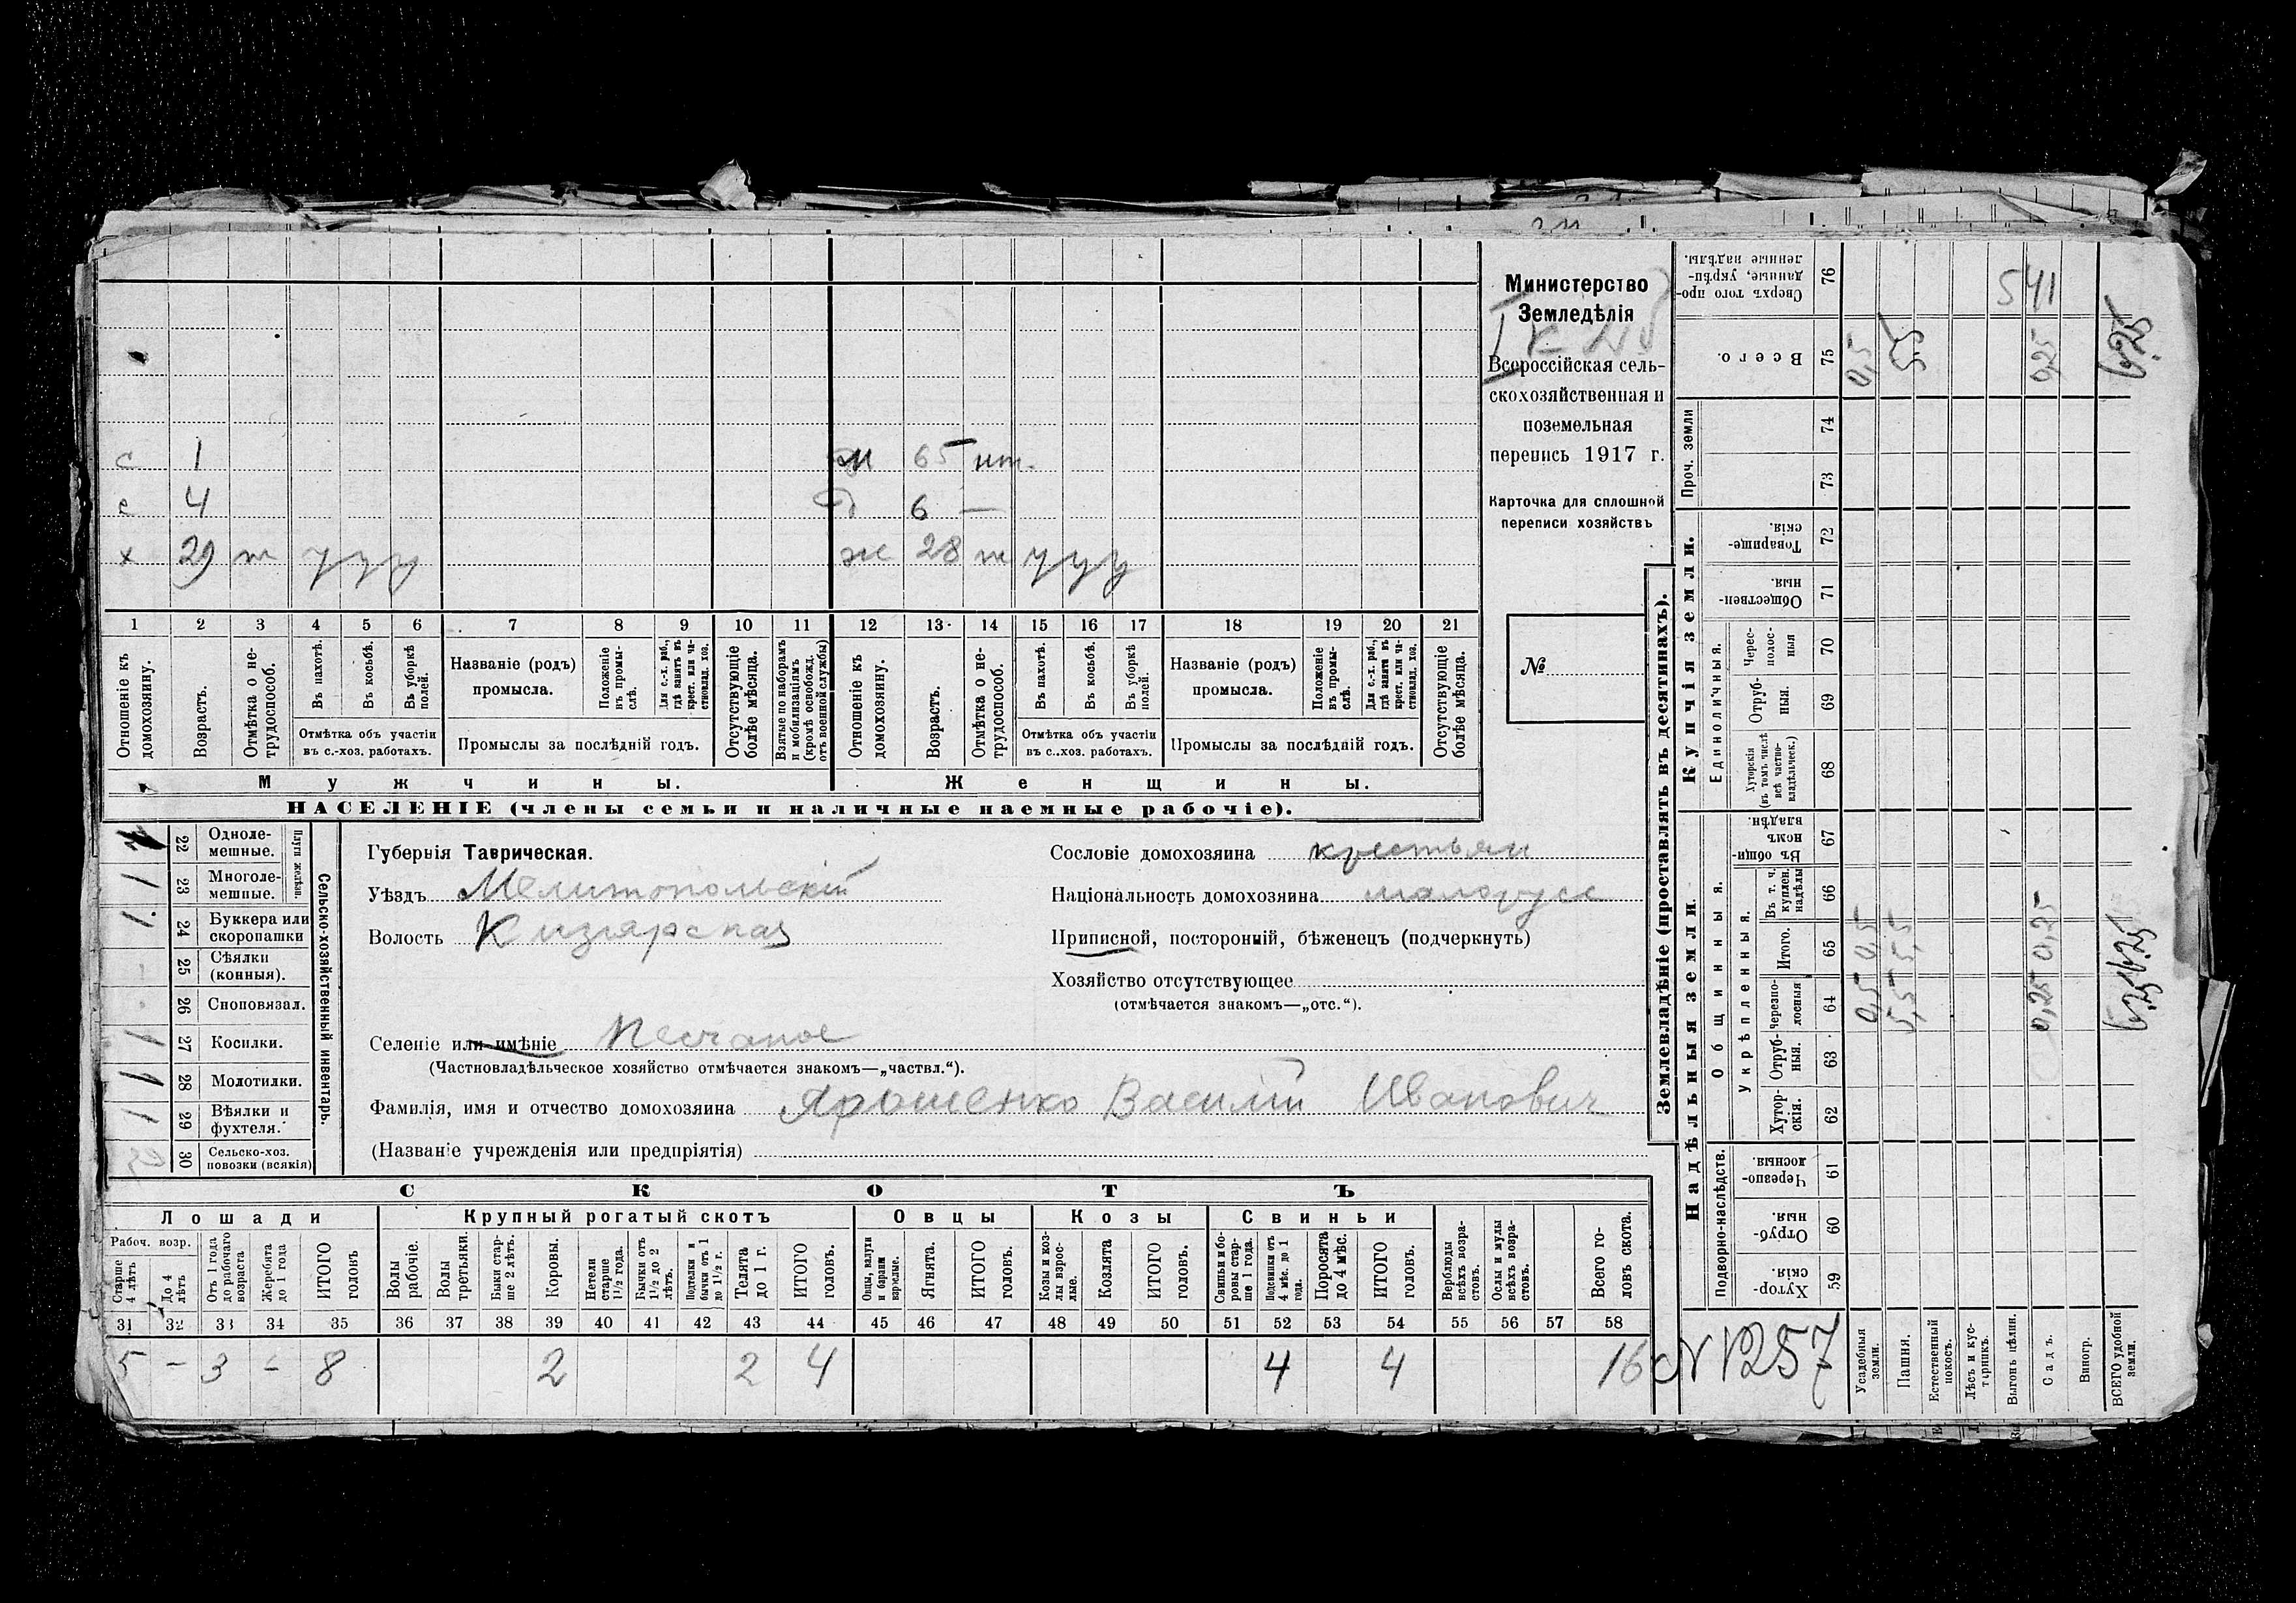 с 1 м 65 нт.
с 4 д 6 —
х 29 т у у у ж 28 т у у у
1 2 3 4 5 6 7 8 9 10 11 12 13 14 15 16 17 18 19 20 21
Отношеніе къ домохозяину.
Возрастъ.
Отмѣтка о нетрудоспособ.
Въ пахотѣ.
Въ косьбѣ.
Въ уборкѣ полей.
Отмѣтка объ участіи
въ с.-хоз. работахъ.
Названіе (родъ)
промысла.
Положеніе въ промыслѣ.
Для с.-х. раб., гдѣ занятъ въ крест. или частновлад. хоз.
Промыслы за послѣдній годъ.
Отсутствующіе болѣе мѣсяца.
Взятые по наборамъ и мобилизаціямъ (кромѣ освобожд. отъ военной службы)
Отношеніе къ домохозяину.
Возрастъ.
Отмѣтка о нетрудоспособ.
Въ пахотѣ.
Въ косьбѣ.
Въ уборкѣ полей.
Отмѣтка объ участіи
въ с..хоз. работахъ.
Названіе (родъ)
промысла.
Положеніе въ промыслѣ.
Для с.-х. раб., гдѣ занята въ крест. или частновлад. хоз.
Промыслы за послѣдній годъ.
Отсутствующіе болѣе мѣсяца.
Мужчины. Женщины.
НАСЕЛЕНІЕ (члены семьи и наличные наемные рабочіе).
Министерство
Земледѣлія
Всероссійская сель-
скохозяйственная и
поземельная
перепись 1917 г.
Карточка для сплошной
переписи хозяйствъ
№
Сельско-хозяйственный инвентарь.
Плуги желѣзн.
22 Одноле-
мешные.
1 23 Многоле-
мешные.
1. 24 Буккера или
скоропашки
25 Сѣялки
(конныя).
26 Сноповязал.
1 27 Косилки.
1 28 Молотилки.
1 29 Вѣялки и
фухтеля.
30 Сельско-хоз.
повозки (всякія)
Губернія Таврическая.
Уѣздъ Мелитопольскій
Волость Кизіярская
Селеніе или имѣніе Песчаное
(Частновладѣльческое хозяйство отмѣчается знакомъ—„частвл.“).
Фамилія, имя и отчество домохозяина Ярошенко Василій Иванович
(Названіе учрежденія или предпріятія)
Сословіе домохозяина крестьян
Національность домохозяина малорусс
Приписной, посторонній, бѣженецъ (подчеркнуть)
Хозяйство отсутствующее
(отмѣчается знакомъ—„отс.“).
СКОТЪ
Лошади Крупный рогатый скотъ Овцы Козы Свиньи
Рабоч. возр.
Старше 4 лѣтъ
До 4 лѣтъ
Отъ 1 года до рабочаго возраста
Жеребята до 1 года
ИТОГО головъ
Волы рабочіе.
Волы третьяки.
Быки старше 2 лѣтъ.
Коровы.
Нетели старше 1½ года.
Бычки отъ 1½ до 2 лѣтъ.
Подтелки и бычки отъ 1 до 1½ г.
Телята до 1 г.
ИТОГО головъ.
Овцы, валухи и бараны взрослые.
Ягнята.
ИТОГО головъ.
Козы и козлы взрослые.
Козлята
ИТОГО головъ.
Свиньи и боровы старше 1 года.
Подсвинки отъ 4 мѣс. до 1 года.
Поросята до 4 мѣс.
ИТОГО головъ.
Верблюды всѣхъ возрастовъ.
Ослы и мулы всѣхъ возрастовъ.
Всего головъ скота.
31 32 33 34 35 36 37 38 39 40 41 42 43 44 45 46 47 48 49 50 51 52 53 54 55 56 57 58
5 — 3 — 8 2 2 4 4 4 16
N 1257
Землевладѣніе (проставлять въ десятинахъ).
Купчія земли.
Надѣльныя земли
Сверхъ того проданные, укрѣпленные надѣлы. 76 541
Всего. 75 0,5 5,5 0,25 6,25
Проч. земли 74
73
Товарищескія. 72
Общественныя. 71
Единоличныя.
Чересполосныя 70
Отрубныя. 69
Хуторскія (въ томъ числѣ всѣ частновладѣльческ.) 68
Общинныя.
Въ общинномъ владѣн. 67
Укрѣпленныя.
Въ т. ч. куплен. надѣлы 66
Итого. 65 0,5 5,5 0,25 6,25
Черезполосныя 64 0,5 5,5 0,25 6,25
Отрубныя. 63
Хуторскія. 62
Подворно-наслѣдств.
Черезполосныя. 61
Отрубныя. 60
Хуторскія. 59
Усадебныя земли.
Пашня.
Естественный покосъ.
Лѣсъ и кустарникъ.
Выгонъ цѣлин.
Садъ.
Виногр.
ВСЕГО удобной земли.